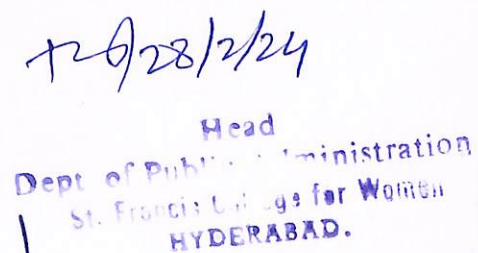 28/2/24
Head
Dept of Public Administration
St. Francis College for Women
HYDERABAD.